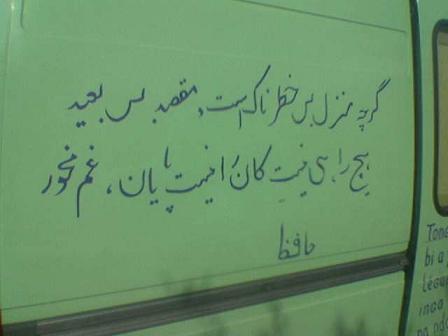 گرچه منزل بس خطرناک است و مقصد بس بعید
هیچ راهی نیست کان را نیست پایان، غم مخور
حافظ
Tone
bi a
Légu
inaa